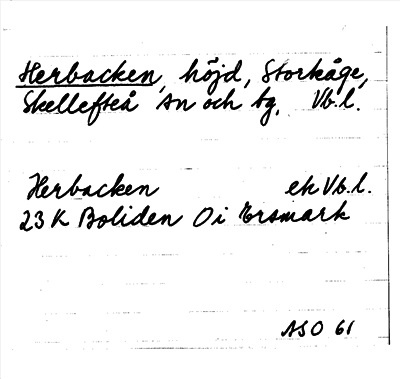 Herbacken, höjd, Storkåge,
Skellefteå sn och tg, Vb.l.
Herbacken ek Vb.l.
23 K Boliden 0 i Ersmark
ASO 61